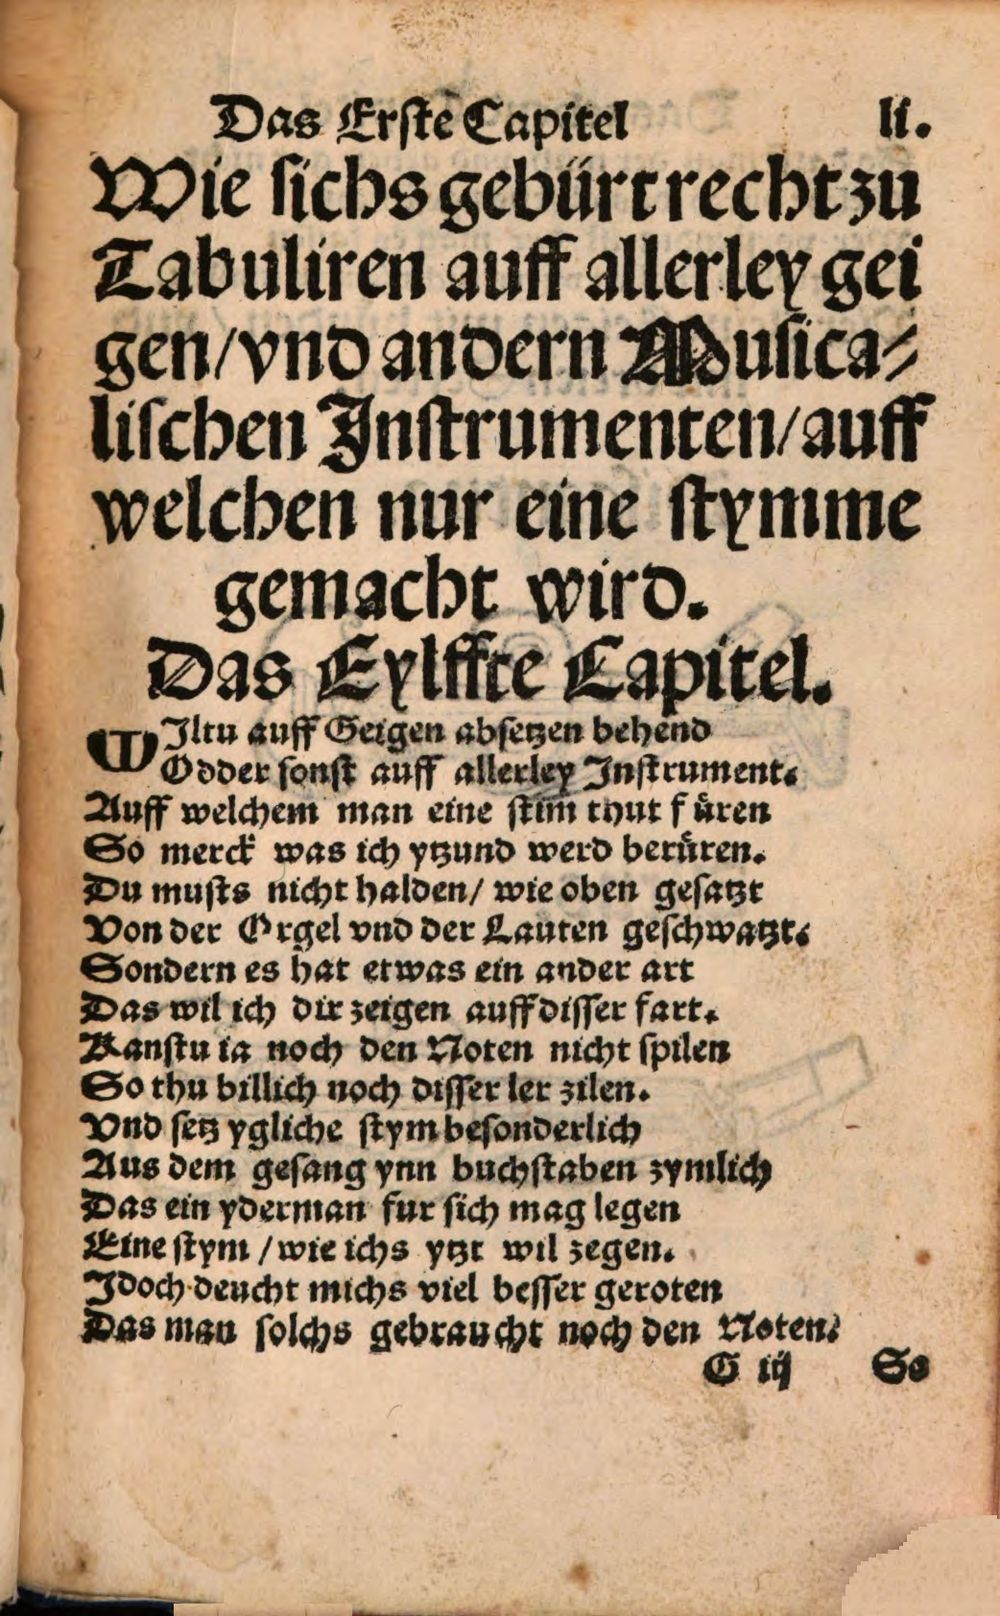 Das Erste Capitel li.
Wie sichs gebürt recht zu
Tabuliren auff allerley gei
gen/vnd andern Musica⸗
lischen Instrumenten/auff
welchen nur eine stymme
gemacht wird.
Das Eylffte Capitel.
WIltu auff Geigen absetzen behend
Odder sonst auff allerley Instrument.
Auff welchem man eine stim thut füren
So merck was ich ytzund werd berüren.
Du musts nicht halden/ wie oben gesatzt
Von der Orgel vnd der Lauten geschwatzt.
Sondern es hat etwas ein ander art
Das wil ich dir zeigen auff disser fart.
Kanstu ia noch den Noten nicht spilen
So thu billich noch disser ler zilen.
Vnd setz ygliche stym besonderlich
Aus dem gesang ynn buchstaben zymlich
Das ein yderman fur sich mag legen
Eine stym / wie ichs ytzt wil zegen.
Idoch deucht michs viel besser geroten
Das man solchs gebraucht noch den Noten.
G iij So